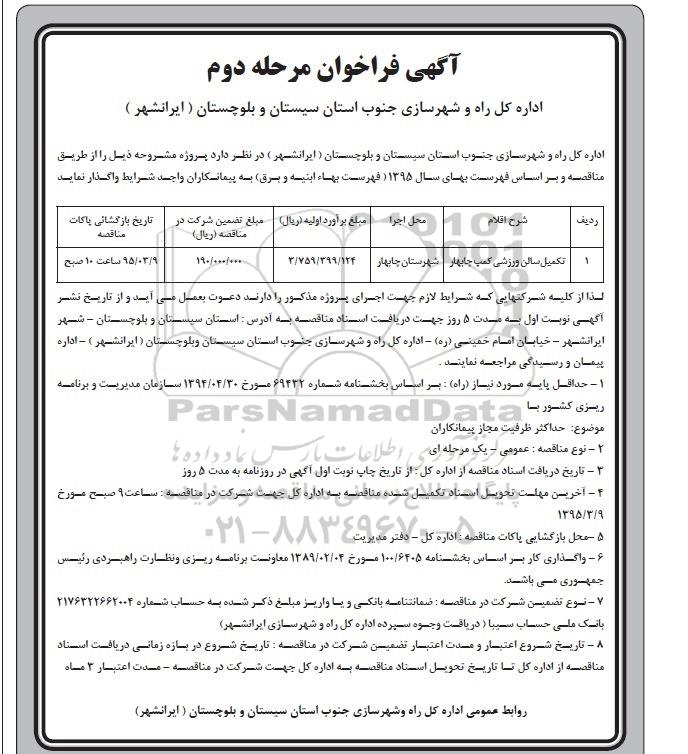 آگهی فراخوان مرحله دوم
اداره کل راه و شهرسازی جنوب استان سیستان و بلوچستان ( ایرانشهر )
اداره کل راه و شهرسازی جنوب استان سیستان و بلوچستان ( ایرانشهر ) در نظر دارد پروژه مشروحه ذیل را از طریق
مناقصه و بر اساس فهرست بهای سال ۱۳۹۵( فهرست بهاء ابنیه و برق) به پیمانکاران واجد شرایط واگذار نماید
ردیف شرح اقلام محل اجرا مبلغ برآورد اولیه (ریال) مبلغ تضمین شرکت در مناقصه (ریال) تاریخ بازگشائی پاکات مناقصه
۱ تکمیل سالن ورزشی کمپ چابهار شهرستان چابهار ۳/۷۵۹/۳۹۹/۱۲۴ ۱۹۰/۰۰۰/۰۰۰ ۹۵/۰۳/۹ ساعت ۱۰ صبح
لذا از کلیه شرکتهایی که شرایط لازم جهت اجرای پروژه مذکور را دارند دعوت بعمل می آید و از تاریخ نشر
آگهی نوبت اول به مدت ۵ روز جهت دریافت اسناد مناقصه به آدرس : استان سیستان و بلوچستان – شهر
ایرانشهر – خیابان امام خمینی (ره) – اداره کل راه و شهرسازی جنوب استان سیستان وبلوچستان ( ایرانشهر ) – اداره
پیمان و رسیدگی مراجعه نمایند .
۱ – حداقل پایه مورد نیاز (راه) : بر اساس بخشنامه شماره ۶۹۴۳۲ مورخ ۱۳۹۴/۰۴/۳۰ سازمان مدیریت و برنامه
ریزی کشور با
موضوع: حداکثر ظرفیت مجاز پیمانکاران
۲ – نوع مناقصه : عمومی – یک مرحله ای
۳ – تاریخ دریافت اسناد مناقصه از اداره کل : از تاریخ چاپ نوبت اول آگهی در روزنامه به مدت ۵ روز
۴ – آخرین مهلت تحویل اسناد تکمیل شده مناقصه به اداره کل جهت شرکت در مناقصه : ساعت۹ صبح مورخ
۱۳۹۵/۳/۹
۵ –محل بازگشایی پاکات مناقصه : اداره کل – دفتر مدیریت
۶ – واگذاری کار بر اساس بخشنامه ۱۰۰/۶۴۰۵ مورخ ۱۳۸۹/۰۲/۰۴ معاونت برنامه ریزی ونظارت راهبردی رئیس
جمهوری می باشد.
۷ – نوع تضمین شرکت در مناقصه : ضمانتنامه بانکی و یا واریز مبلغ ذکر شده به حساب شماره ۲۱۷۶۳۲۲۶۶۲۰۰۴
بانک ملی حساب سیبا ( دریافت وجوه سپرده اداره کل راه و شهرسازی ایرانشهر)
۸ – تاریخ شروع اعتبار و مدت اعتبار تضمین شرکت در مناقصه : تاریخ شروع در بازه زمانی دریافت اسناد
مناقصه از اداره کل تا تاریخ تحویل اسناد مناقصه به اداره کل جهت شرکت در مناقصه – مدت اعتبار ۳ ماه
روابط عمومی اداره کل راه وشهرسازی جنوب استان سیستان و بلوچستان ( ایرانشهر)
ParsNamadData
۰۲۱-۸۸۳۴۹۶۷۰-۵